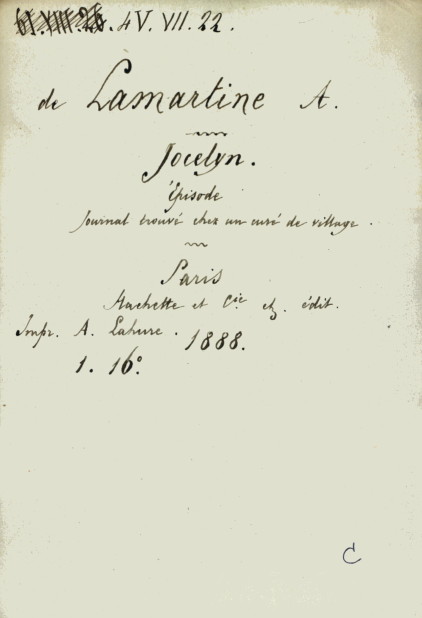 4V.VII.22.
de Lamartine A.
Jocelyn.
Épisode
Journal trouvé chez un curé de village.
Paris
Hachette et Cie édit.
Impr. A. Lahure. 1888.
1. 16°.
C